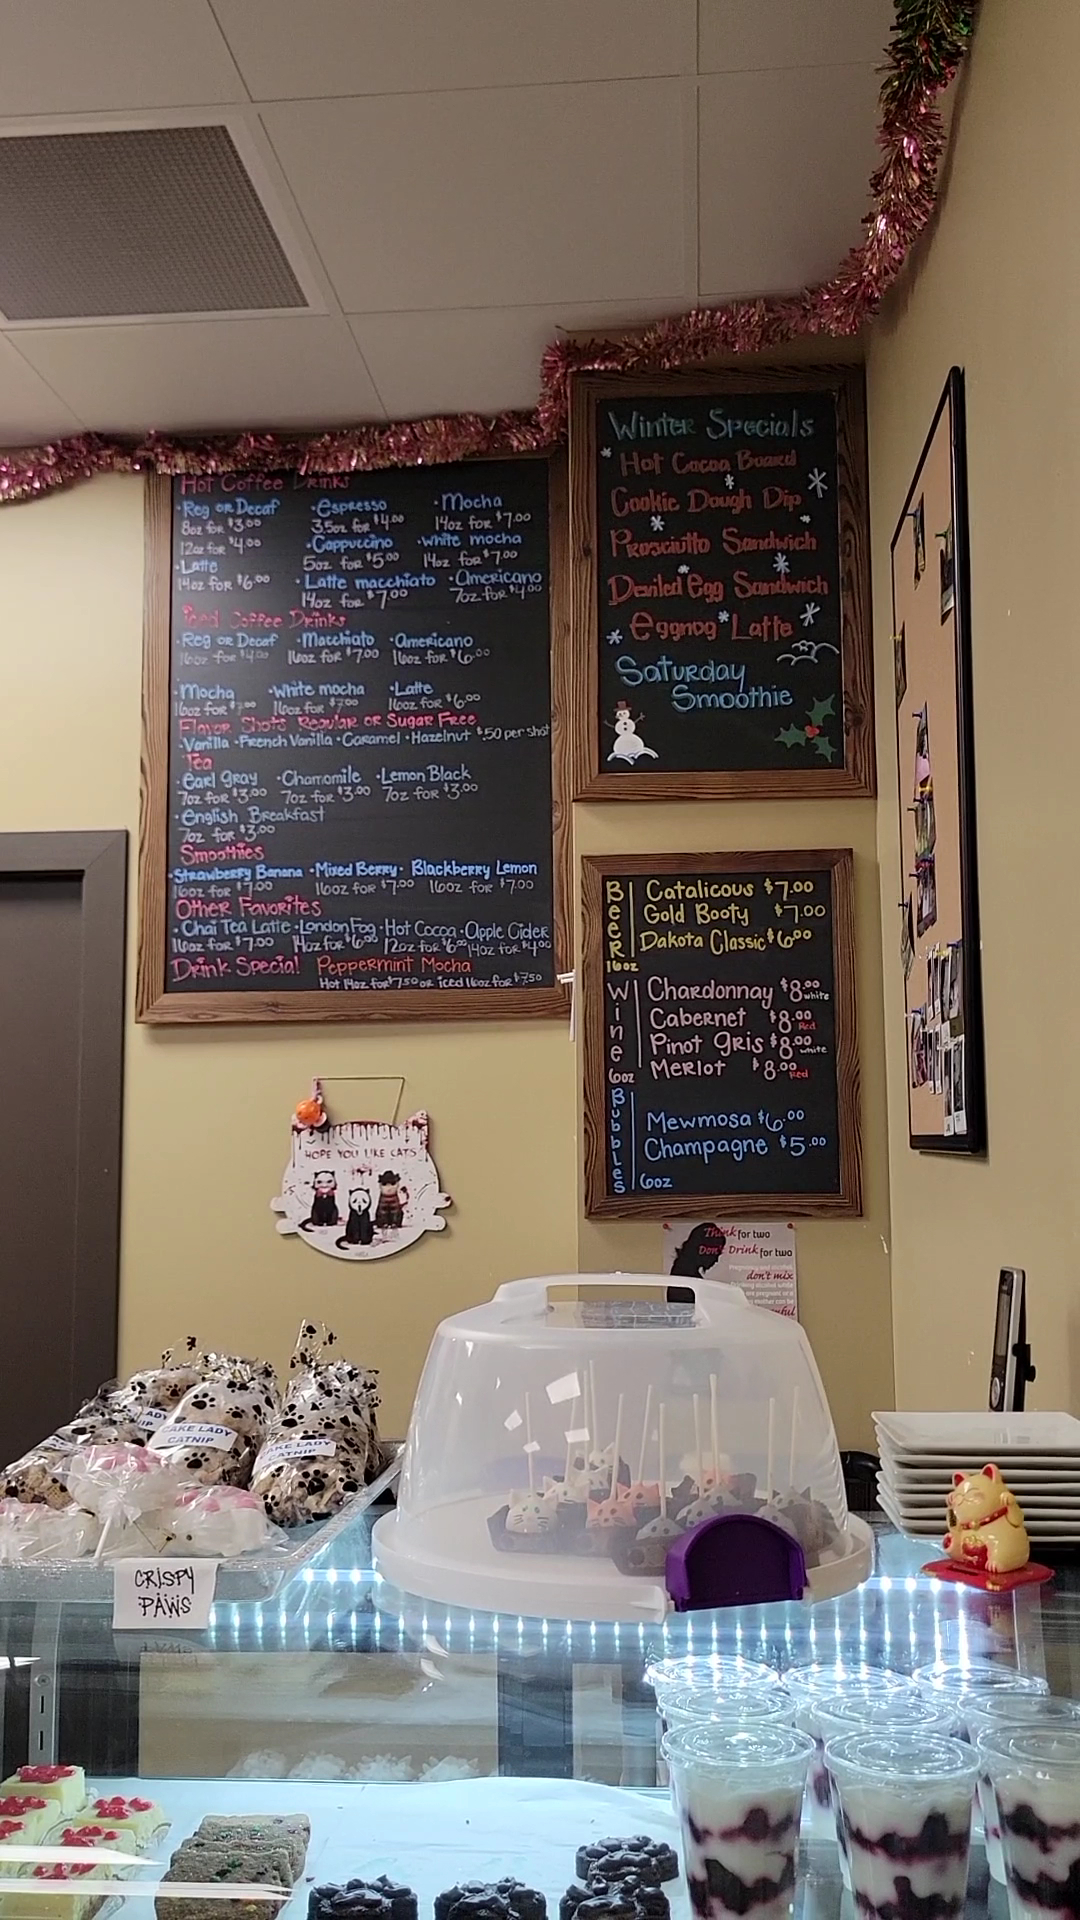 Hot Coffee Drinks
·Reg or Decaf ·Espresso ·Mocha
8oz for $3.00 3.5oz for $4.00 14oz for $7.00
12oz for $4.00 ·Cappuccino ·White mocha
·Latte 5oz for $5.00 14oz for $7.00
14oz for $6.00 ·Latte macchiato ·Americano
14oz for $7.00 7oz for $4.00
Iced Coffee Drinks
·Reg or Decaf ·Macchiato ·Americano
16oz for $4.00 16oz for $7.00 16oz for $6.00
·Mocha ·White mocha ·Latte
16oz for $7.00 16oz for $7.00 16oz for $6.00
Flavor Shots Regular or Sugar Free
·Vanilla ·French Vanilla ·Caramel ·Hazelnut $.50 per shot
Tea
·Earl Gray ·Chamomile ·Lemon Black
7oz for $3.00 7oz for $3.00 7oz for $3.00
·English Breakfast
7oz for $3.00
Smoothies
·Strawberry Banana ·Mixed Berry· Blackberry Lemon
16oz for $7.00 16oz for $7.00 16oz for $7.00
Other Favorites
·Chai Tea Latte ·London Fog ·Hot Cocoa ·Apple Cider
16oz for $7.00 14oz for $6.00 12oz for $6.00 14oz for $4.00
Drink Special Peppermint Mocha
Hot 14oz for $7.50 or iced 16oz for $7.50
Winter Specials
Hot Cocoa Board
Cookie Dough Dip
Prosciutto Sandwich
Deviled Egg Sandwich
Eggnog Latte
Saturday
Smoothie
Beer
Catalicous $7.00
Gold Booty $7.00
Dakota Classic $6.00
16oz
Wine
Chardonnay $8.00 white
Cabernet $8.00 Red
Pinot Gris $8.00 white
Merlot $8.00 Red
6oz
Bubbles
Mewmosa $6.00
Champagne $5.00
6oz
HOPE YOU LIKE CATS
Think for two
Don't Drink for two
Pregnancy and alcohol
don't mix
CAKE LADY
CATNIP
CAKE LADY
CATNIP
CRISPY
PAWS